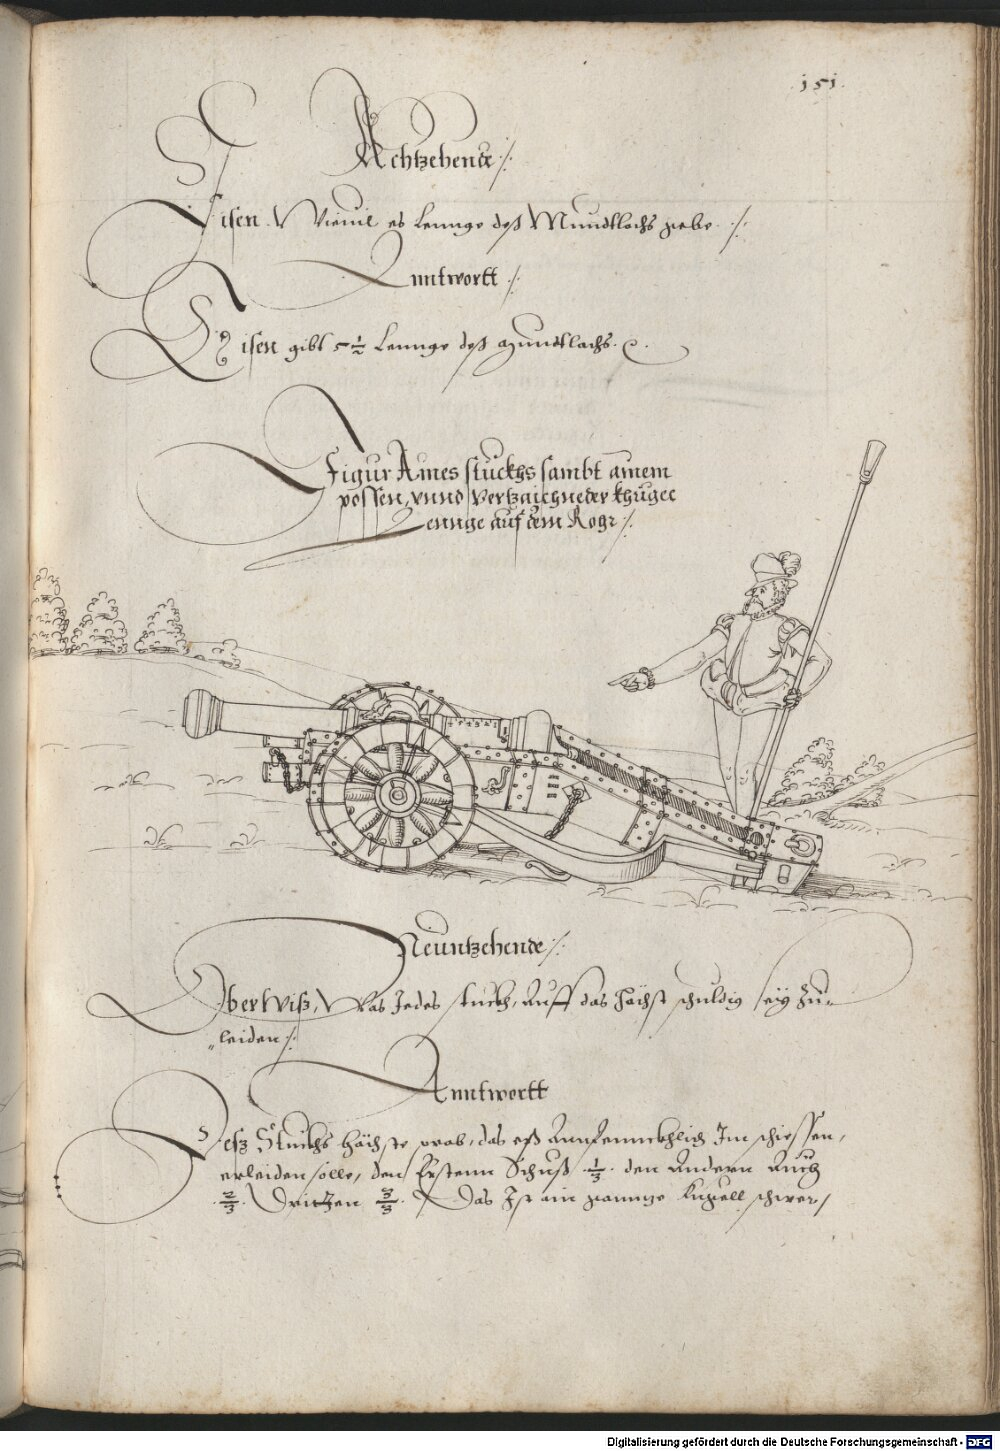 151.
Achtzehende /.
Eisen. Wieuil es lennge deß Mundtlochs gebe. /.
Anntwortt /.
Eisen gibt 5 1/2 lennge deß Mundtlochs.
Figur Aines stuckhs sambt ainem
possen, vnnd verzaichneder khugel
Lennge auf dem Rohr /.
Neuntzehende /.
Ob er wiß, Was Jedes stuckh, auff das höchst schuldig seÿ zu=
"leiden /.
Anntwortt
Deß Stuckhs höchste prob, das eß Im schiessen,
erleiden solle, den Erstenn Schuß 1/3. den Andern Auch
2/3. Dritten 3/3. Das Ist ain ganntze kugell schwer /
Digitalisierung gefördert durch die Deutsche Forschungsgemeinschaft - DFG